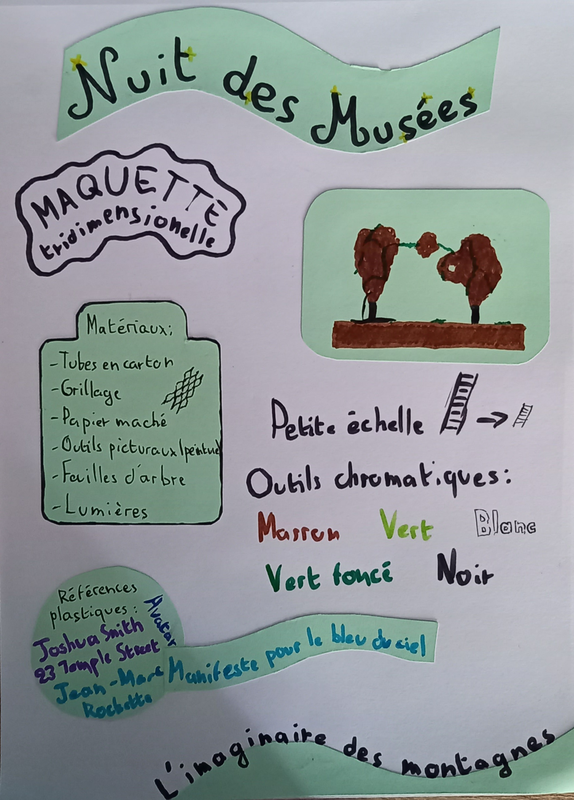 Nuit des Musées
MAQUETTE
tridimensionelle
Matériaux:
-Tubes en carton
-Grillage
-Papier maché
-Outils picturaux (peinture)
-Feuilles d'arbre
-Lumières
Petite échelle
Outils chromatiques:
Marron Vert Blanc
Vert foncé Noir
Références
plastiques:
Avatar
Joshua Smith
23 Temple Street
Jean-Marc
Rochette
Manifeste pour le bleu du ciel
L'imaginaire des montagnes